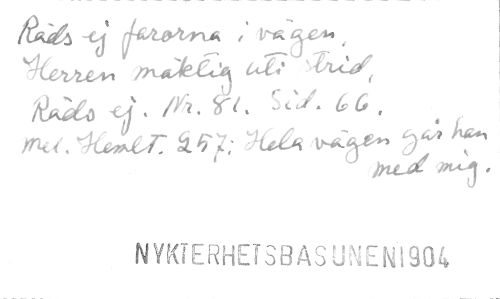 Räds ej farorna i vägen,
Herren mäktig uti strid,
Räds ej. Nr. 81. Sid. 66.
Mel. Hemlt. 257: Hela vägen går han
med mig.
NYKTERHETSBASUNEN1904